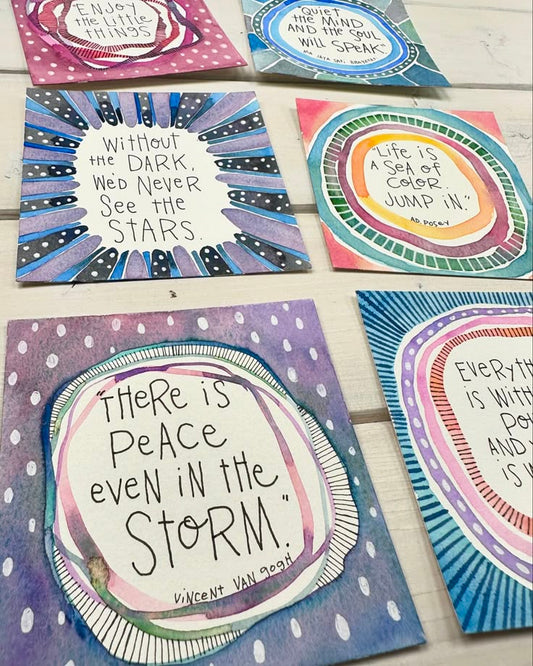 ENJOY
THE LITTLE
THINGS
"QUIET
THE MIND
AND THE SOUL
WILL SPEAK"
WITHOUT
THE DARK,
WE'D NEVER
SEE THE
STARS.
"LIFE IS
A SEA OF
COLOR.
JUMP IN."
AD POSEY
"THERE IS
PEACE
EVEN IN THE
STORM."
VINCENT VAN GOGH
IS WITH
AND